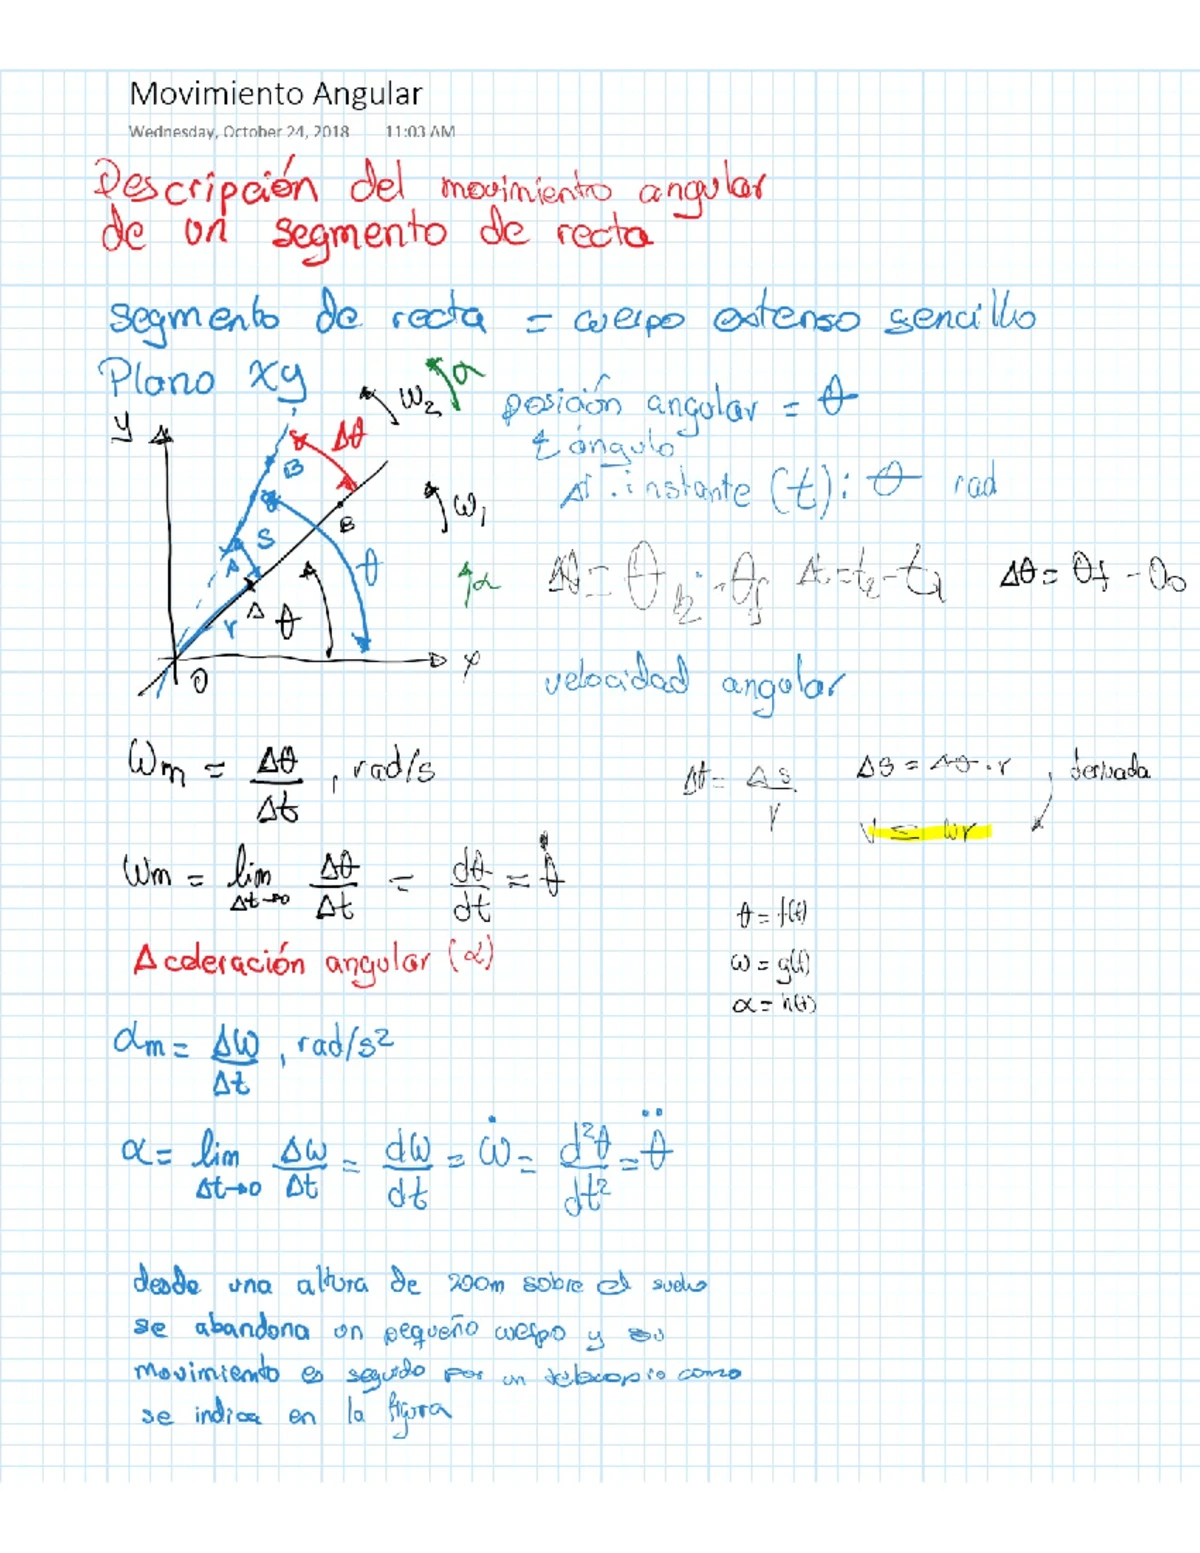 Movimiento Angular
Wednesday, October 24, 2018 11:03 AM
Descripción del movimiento angular
de un segmento de recta
segmento de recta = cuerpo extenso sencillo
Plano xy
y
ω₂
α
Δθ
B
B
S
A
A
r
θ
θ
ω₁
α
x
O
posición angular = θ
ángulo
instante (t): θ rad
Δθ = θf - θo
velocidad angular
ωm = Δθ/Δt , rad/s
Δs = Δθ · r , derivada
v = ωr
ωm = lim Δt→0 Δθ/Δt = dθ/dt = θ̇
θ = f(t)
ω = g(t)
α = h(t)
Aceleración angular (α)
αm = Δω/Δt , rad/s²
α = lim Δt→0 Δω/Δt = dω/dt = ω̇ = d²θ/dt² = θ̈
desde una altura de 200m sobre el suelo
se abandona un pequeño cuerpo y su
movimiento es seguido por un telescopio como
se indica en la figura